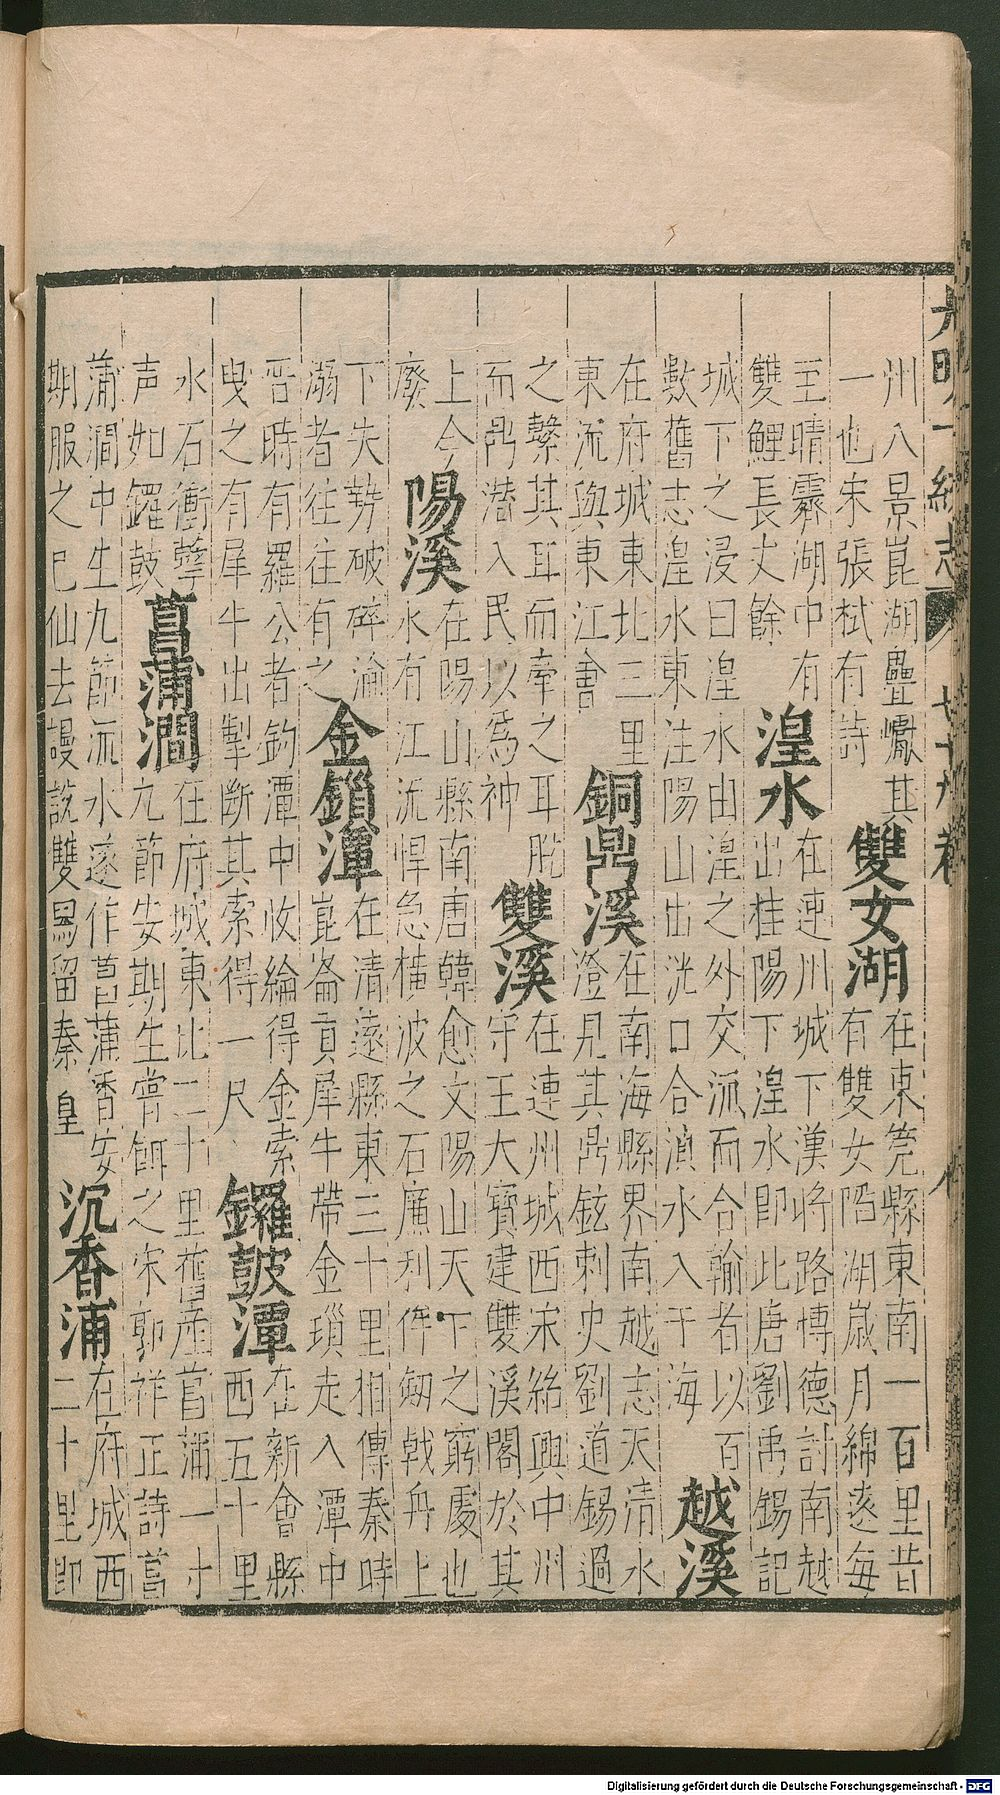 大明一統志 七十九卷
州八景崑湖疊巘其
一也宋張栻有詩
雙女湖
在東筦縣東南一百里昔
有雙女陷湖歲月綿遠每
至晴霽湖中有
雙鯉長丈餘
湟水
在連州城下漢將路博德討南越
出桂陽下湟水即此唐劉禹錫記
城下之浸曰湟水由湟之外交流而合輸者以百
數舊志湟水東注陽山出洸口合湞水入于海
越溪
在府城東北三里
東流與東江會
銅鼎溪
在南海縣界南越志天清水
澄見其鼎鉉刺史劉道錫過
之繫其耳而牽之耳脫
而鼎潛入民以為神
雙溪
在連州城西宋紹興中州
守王大寶建雙溪閣於其
上今
廢
陽溪
在陽山縣南唐韓愈文陽山天下之窮處也
水有江流悍急橫波之石廉利侔劒戟舟上
下失勢破碎淪
溺者往往有之
金鎖潭
在清遠縣東三十里相傳秦時
崑崙貢犀牛帶金瑣走入潭中
晋時有羅公者釣潭中收綸得金索
曳之有犀牛出掣斷其索得一尺
鑼鼓潭
在新會縣
西五十里
水石衝擊
声如鑼鼓
菖蒲澗
在府城東北二十里舊產菖蒲一寸
九節安期生嘗餌之宋郭祥正詩菖
蒲澗中生九節流水遂作菖蒲香安
期服之已仙去謾說雙舄留秦皇
沉香浦
在府城西
二十里即
Digitalisierung gefördert durch die Deutsche Forschungsgemeinschaft - DFG